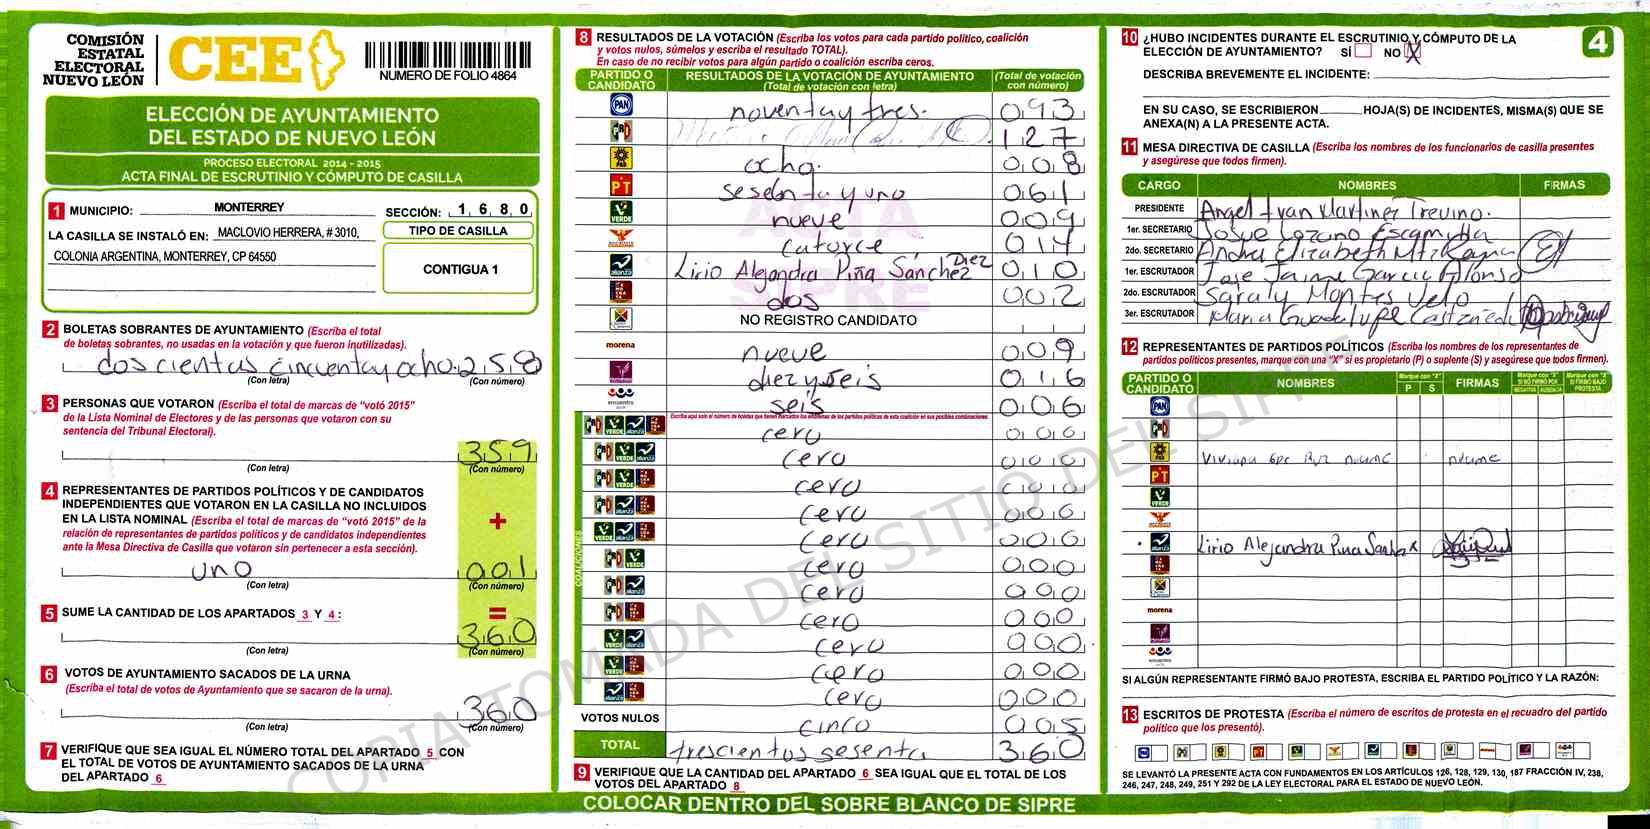 COMISIÓN
ESTATAL
ELECTORAL
NUEVO LEÓN
CEE
NUMERO DE FOLIO 4864
ELECCIÓN DE AYUNTAMIENTO
DEL ESTADO DE NUEVO LEÓN
PROCESO ELECTORAL 2014 - 2015
ACTA FINAL DE ESCRUTINIO Y CÓMPUTO DE CASILLA
1 MUNICIPIO: MONTERREY SECCIÓN: 1,6,8,0,
LA CASILLA SE INSTALÓ EN: MACLOVIO HERRERA, # 3010,
COLONIA ARGENTINA, MONTERREY, CP 64550
TIPO DE CASILLA
CONTIGUA 1
2 BOLETAS SOBRANTES DE AYUNTAMIENTO (Escriba el total
de boletas sobrantes, no usadas en la votación y que fueron inutilizadas).
dos cientas cincuenta y ocho 2 5 8
(Con letra) (Con número)
3 PERSONAS QUE VOTARON (Escriba el total de marcas de "votó 2015"
de la Lista Nominal de Electores y de las personas que votaron con su
sentencia del Tribunal Electoral).
359
(Con letra) (Con número)
4 REPRESENTANTES DE PARTIDOS POLÍTICOS Y DE CANDIDATOS
INDEPENDIENTES QUE VOTARON EN LA CASILLA NO INCLUIDOS
EN LA LISTA NOMINAL (Escriba el total de marcas de "votó 2015" de la
relación de representantes de partidos políticos y de candidatos independientes
ante la Mesa Directiva de Casilla que votaron sin pertenecer a esta sección).
+
uno 001
(Con letra) (Con número)
5 SUME LA CANTIDAD DE LOS APARTADOS 3 Y 4 :
=
360
(Con letra) (Con número)
6 VOTOS DE AYUNTAMIENTO SACADOS DE LA URNA
(Escriba el total de votos de Ayuntamiento que se sacaron de la urna).
360
(Con letra) (Con número)
7 VERIFIQUE QUE SEA IGUAL EL NÚMERO TOTAL DEL APARTADO 5 CON
EL TOTAL DE VOTOS DE AYUNTAMIENTO SACADOS DE LA URNA
DEL APARTADO 6
8 RESULTADOS DE LA VOTACIÓN (Escriba los votos para cada partido político, coalición
y votos nulos, súmelos y escriba el resultado TOTAL).
En caso de no recibir votos para algún partido o coalición escriba ceros.
PARTIDO O CANDIDATO RESULTADOS DE LA VOTACIÓN DE AYUNTAMIENTO (Total de votación con letra) (Total de votación con número)
PAN noventa y tres. 093
127
PRD ocho. 008
PT sesenta y uno 061
VERDE nueve 009
catorce 014
alianza Lirio Alejandra Piña Sánchez Diez 010
dos 002
NO REGISTRO CANDIDATO
morena nueve 009
diez y seis 016
encuentro seis 006
Escriba aquí solo el número de boletas que tienen marcados los emblemas de los partidos políticos de esta coalición en sus posibles combinaciones.
COALICIONES
cero 000
cero 000
cero 000
cero 000
cero 000
cero 000
cero 000
cero 000
cero 000
cero 000
cero 000
VOTOS NULOS cinco 005
TOTAL trescientos sesenta 360
9 VERIFIQUE QUE LA CANTIDAD DEL APARTADO 6 SEA IGUAL QUE EL TOTAL DE LOS
VOTOS DEL APARTADO 8
ACTA
SIPRE
COPIA TOMADA DEL SITIO DEL SIPRE
COLOCAR DENTRO DEL SOBRE BLANCO DE SIPRE
10 ¿HUBO INCIDENTES DURANTE EL ESCRUTINIO Y CÓMPUTO DE LA
ELECCIÓN DE AYUNTAMIENTO? SÍ NO X
4
DESCRIBA BREVEMENTE EL INCIDENTE:
EN SU CASO, SE ESCRIBIERON HOJA(S) DE INCIDENTES, MISMA(S) QUE SE
ANEXA(N) A LA PRESENTE ACTA.
11 MESA DIRECTIVA DE CASILLA (Escriba los nombres de los funcionarios de casilla presentes
y asegúrese que todos firmen).
CARGO NOMBRES FIRMAS
PRESIDENTE Angel Ivan Martinez Trevino.
1er. SECRETARIO Josue Lozano Escamilla
2do. SECRETARIO Andrea Elizabeth Mtz Reyna
1er. ESCRUTADOR Jose Jaime Garcia Alonso
2do. ESCRUTADOR Saraly Montes Velo
3er. ESCRUTADOR Maria Guadalupe Castañeda
12 REPRESENTANTES DE PARTIDOS POLÍTICOS (Escriba los nombres de los representantes de
partidos políticos presentes, marque con una "X" si es propietario (P) o suplente (S) y asegúrese que todos firmen).
PARTIDO O CANDIDATO NOMBRES Marque con "X" P S FIRMAS
PAN
PRD
PT
VERDE
alianza Lirio Alejandra Piña Sanhz x
morena
encuentro
SI ALGÚN REPRESENTANTE FIRMÓ BAJO PROTESTA, ESCRIBA EL PARTIDO POLÍTICO Y LA RAZÓN:
13 ESCRITOS DE PROTESTA (Escriba el número de escritos de protesta en el recuadro del partido
político que los presentó).
SE LEVANTÓ LA PRESENTE ACTA CON FUNDAMENTOS EN LOS ARTÍCULOS 126, 128, 129, 130, 187 FRACCIÓN IV, 238,
246, 247, 248, 249, 251 Y 292 DE LA LEY ELECTORAL PARA EL ESTADO DE NUEVO LEÓN.